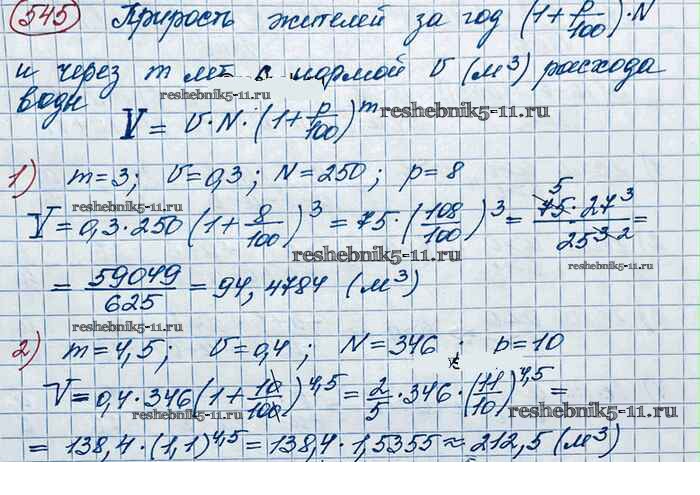 545 Прирость жителей за год (1+p/100)·N
и через m лет с нормой v (м³) расхода
воды
reshebnik5-11.ru
V = v·N·(1+p/100)^m
reshebnik5-11.ru
1) m=3; v=0,3; N=250; p=8
reshebnik5-11.ru
V=0,3·250(1+8/100)^3 = 75·(108/100)^3 = 5 75·27^3/25^3 2 =
reshebnik5-11.ru
reshebnik5-11.ru
= 59049/625 = 94,4784 (м³)
reshebnik5-11.ru
2) m=4,5; v=0,4; N=346; p=10
reshebnik5-11.ru
V=0,4·346(1+10/100)^4,5 = 2/5·346·(11/10)^4,5 =
reshebnik5-11.ru
reshebnik5-11.ru
= 138,4·(1,1)^4,5 = 138,4·1,5355≈212,5 (м³)